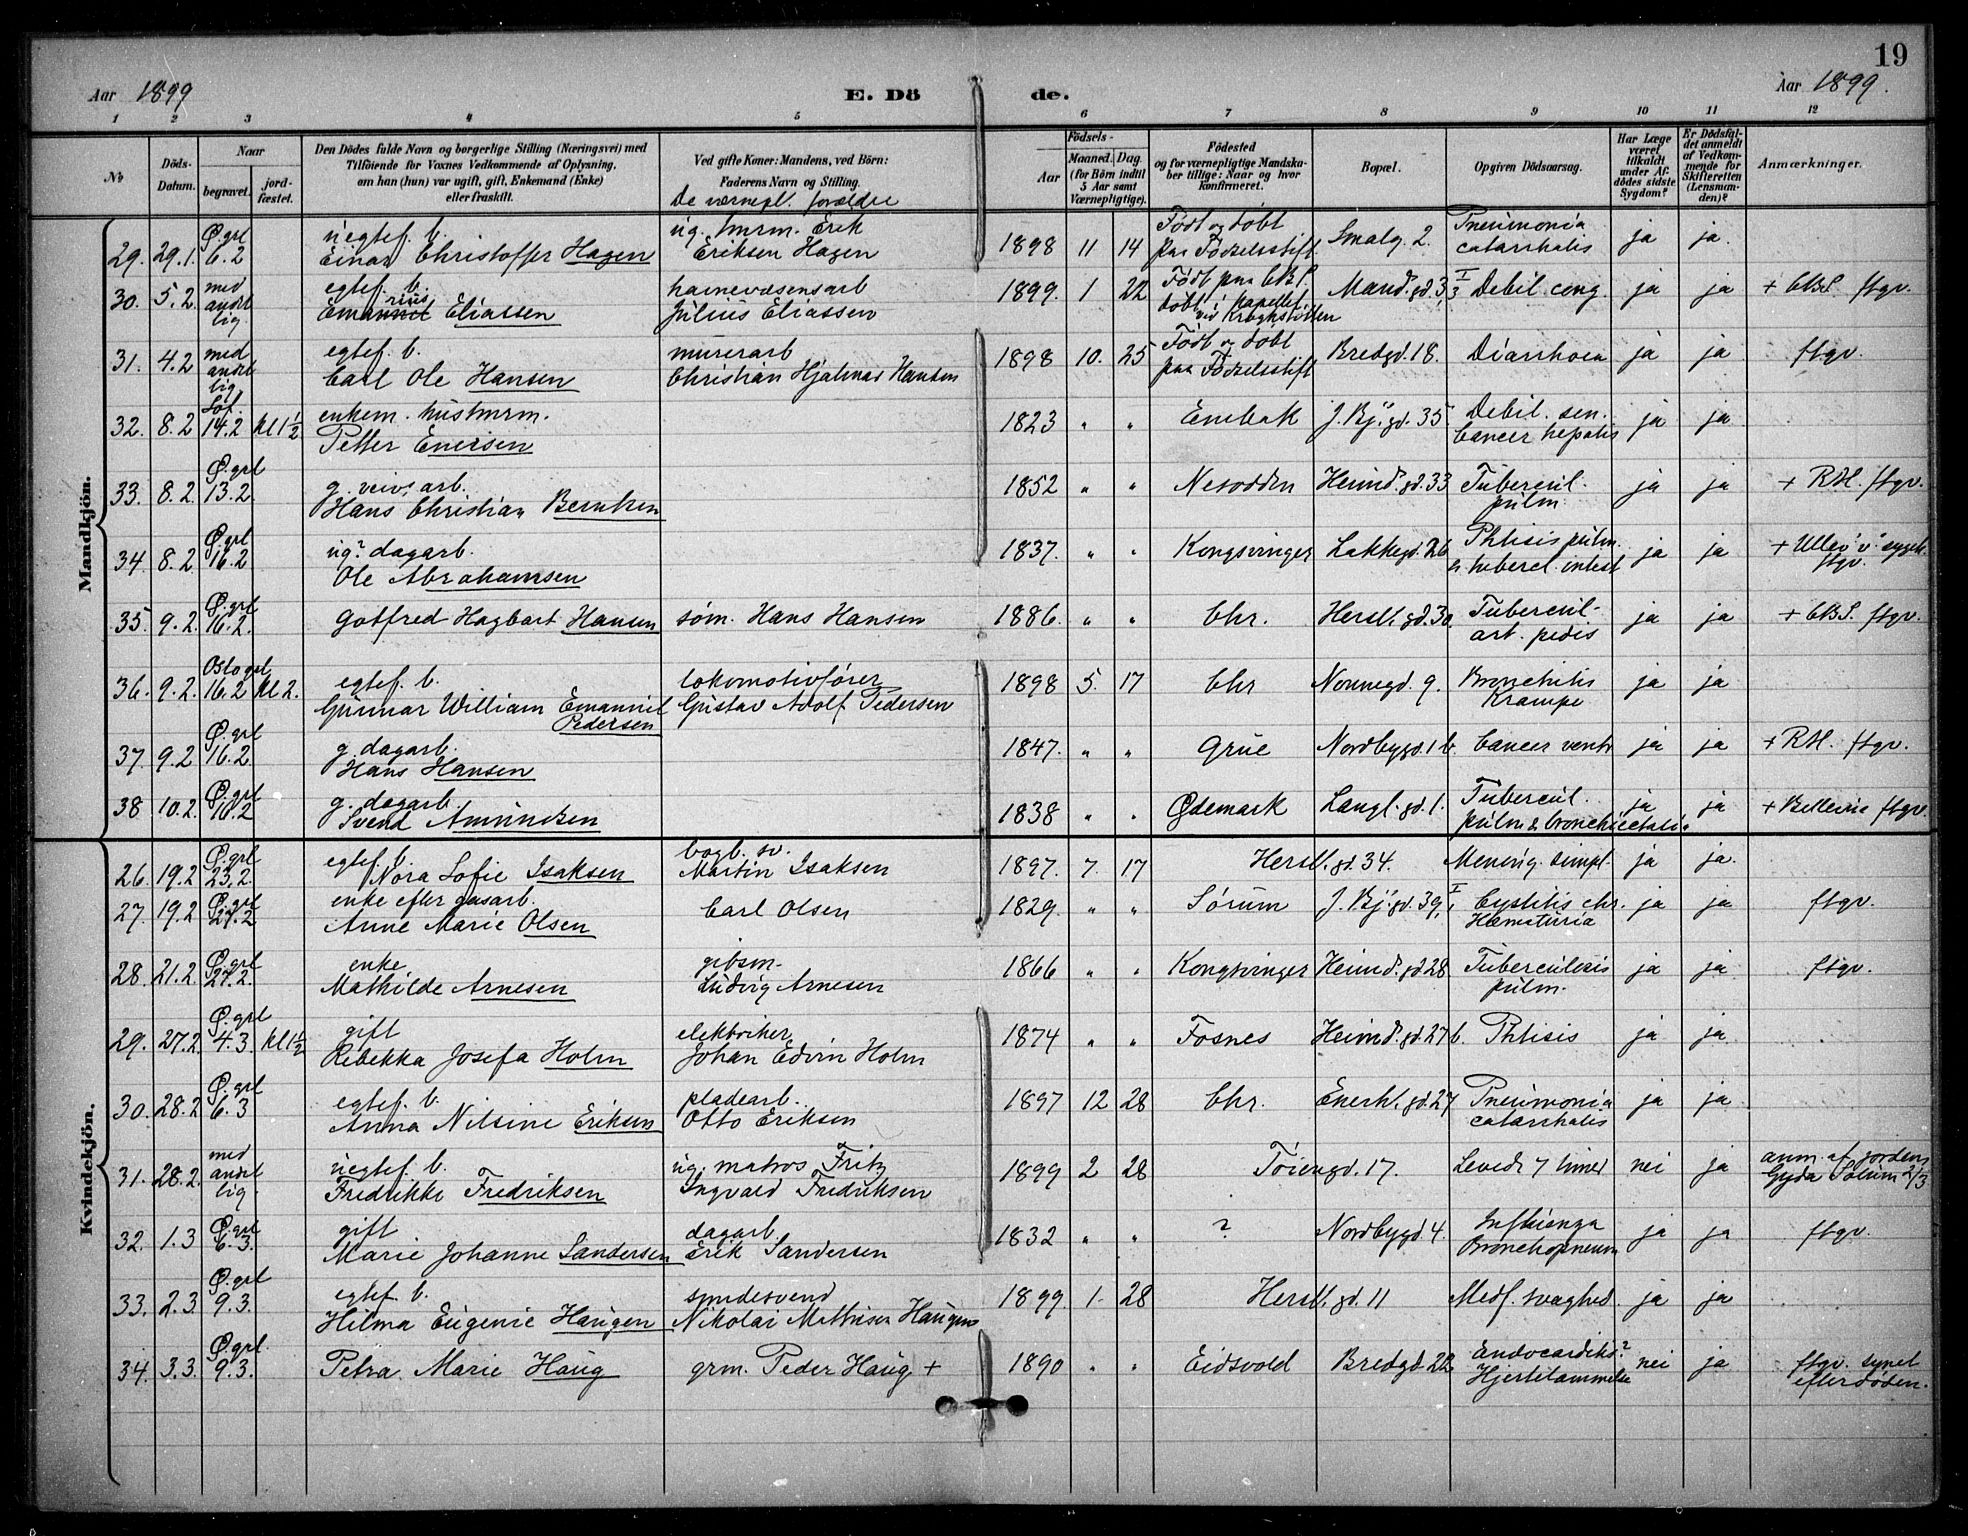 19
Aar 1899
E. Dö
de.
Aar 1899.
1 2 3 4 5 6 7 8 9 10 11 12
No
Döds-Datum.
Naar
begravet.
jord-fæstet.
Den Dödes fulde Navn og borgerlige Stilling (Næringsvei) med
Tilföiende for Voxnes Vedkommende af Oplysning,
om han (hun) var ugift, gift, Enkemand (Enke)
eller fraskilt.
Ved gifte Koner: Mandens, ved Börn:
Faderens Navn og Stilling.
De værnepl. forældre
Födsels-
Aar
Maaned. Dag.
(for Börn indtil
5 Aar samt
Værnepligtige).
Födested
og for værnepligtige Mandska-
ber tillige: Naar og hvor
konfirmeret.
Bopæl.
Opgiven Dödsaarsag.
Har Læge
været
tilkaldt
under Af-
dödes sidste
Sygdom?
Er Dödsfal-
det anmeldt
af Vedkom-
mende for
Skifteretten
(Lensman-
den)?
Anmærkninger.
Mandkjön.
29. 29.1. Ø.grl 6.2 uegtef. b. Einar Christoffer Hagen ug. tmrm. Erik Eriksen Hagen 1898 11 14 Født og døbt paa Fødselsstift. Smalg. 2. Pneumonia catarrhalis ja ja.
30. 5.2. med andet lig egtef. b. Emarius Eliassen havnevæsensarb Julius Eliassen 1899. 1 22 Født paa CBS. døbt i kapellet ved Kroghstøtten Mand.gd. 33 I Debil. cong. ja ja + CBS. ftgv.
31. 4.2 med andet lig egtef. b. Carl Ole Hansen murerarb Christian Hjalmar Hansen 1898 10. 25 Født og døbt paa Fødselsstift Bredgd. 18. Diarrhoea ja ja ftgv.
32. 8.2 Sof. 14.2 kl 1½ enkem. hustmrm. Petter Enersen 1823 " " Enebak J. Bj. gd. 35 Debil. sen. Cancer hepatis ja ja
33. 8.2. Ø.grl 13.2 g. veivsarb. Hans Christian Berntsen 1852 " " Nesodden Heimd.gd. 33 Tubercul. pulm. ja ja + RH. ftgv.
34. 8.2 Ø.grl 16.2 ug? dagarb. Ole Abrahamsen 1837. " " Kongsvinger Lakkegd. 26 Phtisis pulm. & tubercl. intest ja ja + Ullev. sygeh. ftgv.
35. 9.2. Ø.grl 16.2. Gotfred Hagbart Hansen søm. Hans Hansen 1886. " " Chr. Hersl. gd. 30. Tubercul. art. pedis ja ja + CBS. ftgv.
36. 9.2. Oslo grl 16.2 kl 2. egtef. b. Gunnar William Emanuel Pedersen lokomotivfører Gustav Adolf Pedersen 1898 5. 17 Chr Nonnegd. 9. Bronchitis Krampe ja ja
37. 9.2 Ø.grl 16.2. g. dagarb. Hans Hansen 1847. " " Grue Nordbygd. 1 b. Cancer ventr ja ja + RH. ftgv.
38 10.2. Ø.grl 16.2 g. dagarb. Svend Amundsen 1838 " " Ødemark Langl. gd. 1. Tubercul. pulm & bronchiectasi. ja ja + Bellevue ftgv.
Kvindekjön.
26. 19.2 Ø.grl 23.2. egtef. b. Nora Sofie Isaksen bogb. sv. Martin Isaksen 1897. 7. 17 Hersl. gd. 34. Mening. simpl. ja ja.
27. 19.2 Ø.grl 27.2 enke efter gasarb. Anne Marie Olsen Carl Olsen 1829. " " Sørum J. Bj. gd. 39, I Cystitis chr. Hæmaturia ja ja ftgv.
28. 21.2. Ø.grl 27.2. enke Mathilde Arnesen gibsm. Ludvig Arnesen 1866 " " Kongsvinger Heimd. gd 28 Tuberculosis pulm. ja ja ftgv.
29. 27.2. Ø.grl 4.3. kl 1½ gift Rebekka Josefa Holm elektriker Johan Edvin Holm 1874 " " Fosnes Heimd. gd. 27 b. Phtisis ja ja.
30. 28.2 Ø.grl 6.3 egtef. b. Anna Nilsine Eriksen pladearb. Otto Eriksen 1897 12 28 Chr. Enerh. gd. 27 Pneumonia catarrhalis ja ja
31. 28.2. med andet lig. uegtef. b. Fredrikke Fredriksen ug. matros Fritz Ingvald Fredriksen 1899 2 28 Tøiengd. 17. Leved 7 timer nei ja anm. af jordem Gyda Solum 2/3
32. 1.3 Ø.grl 6.3. gift Marie Johanne Sandersen dagarb. Erik Sandersen 1832 " " ? Nordbygd 4. Influenza Bronchopneum ja ja ftgv.
33. 2.3. Ø.grl 9.3. egtef. b. Hilma Eugenie Haugen smedesvend Nikolai Mathisen Haugen 1899. 1. 28 Hersl. gd. 11 Medf. svaghed. ja ja
34. 3.3. Ø.grl. 9.3. Petra Marie Haug grm. Peder Haug + 1890 " " Eidsvold Bredgd. 22 Endocarditis? Hjertelammelse nei ja ftgv. synet efter døden.